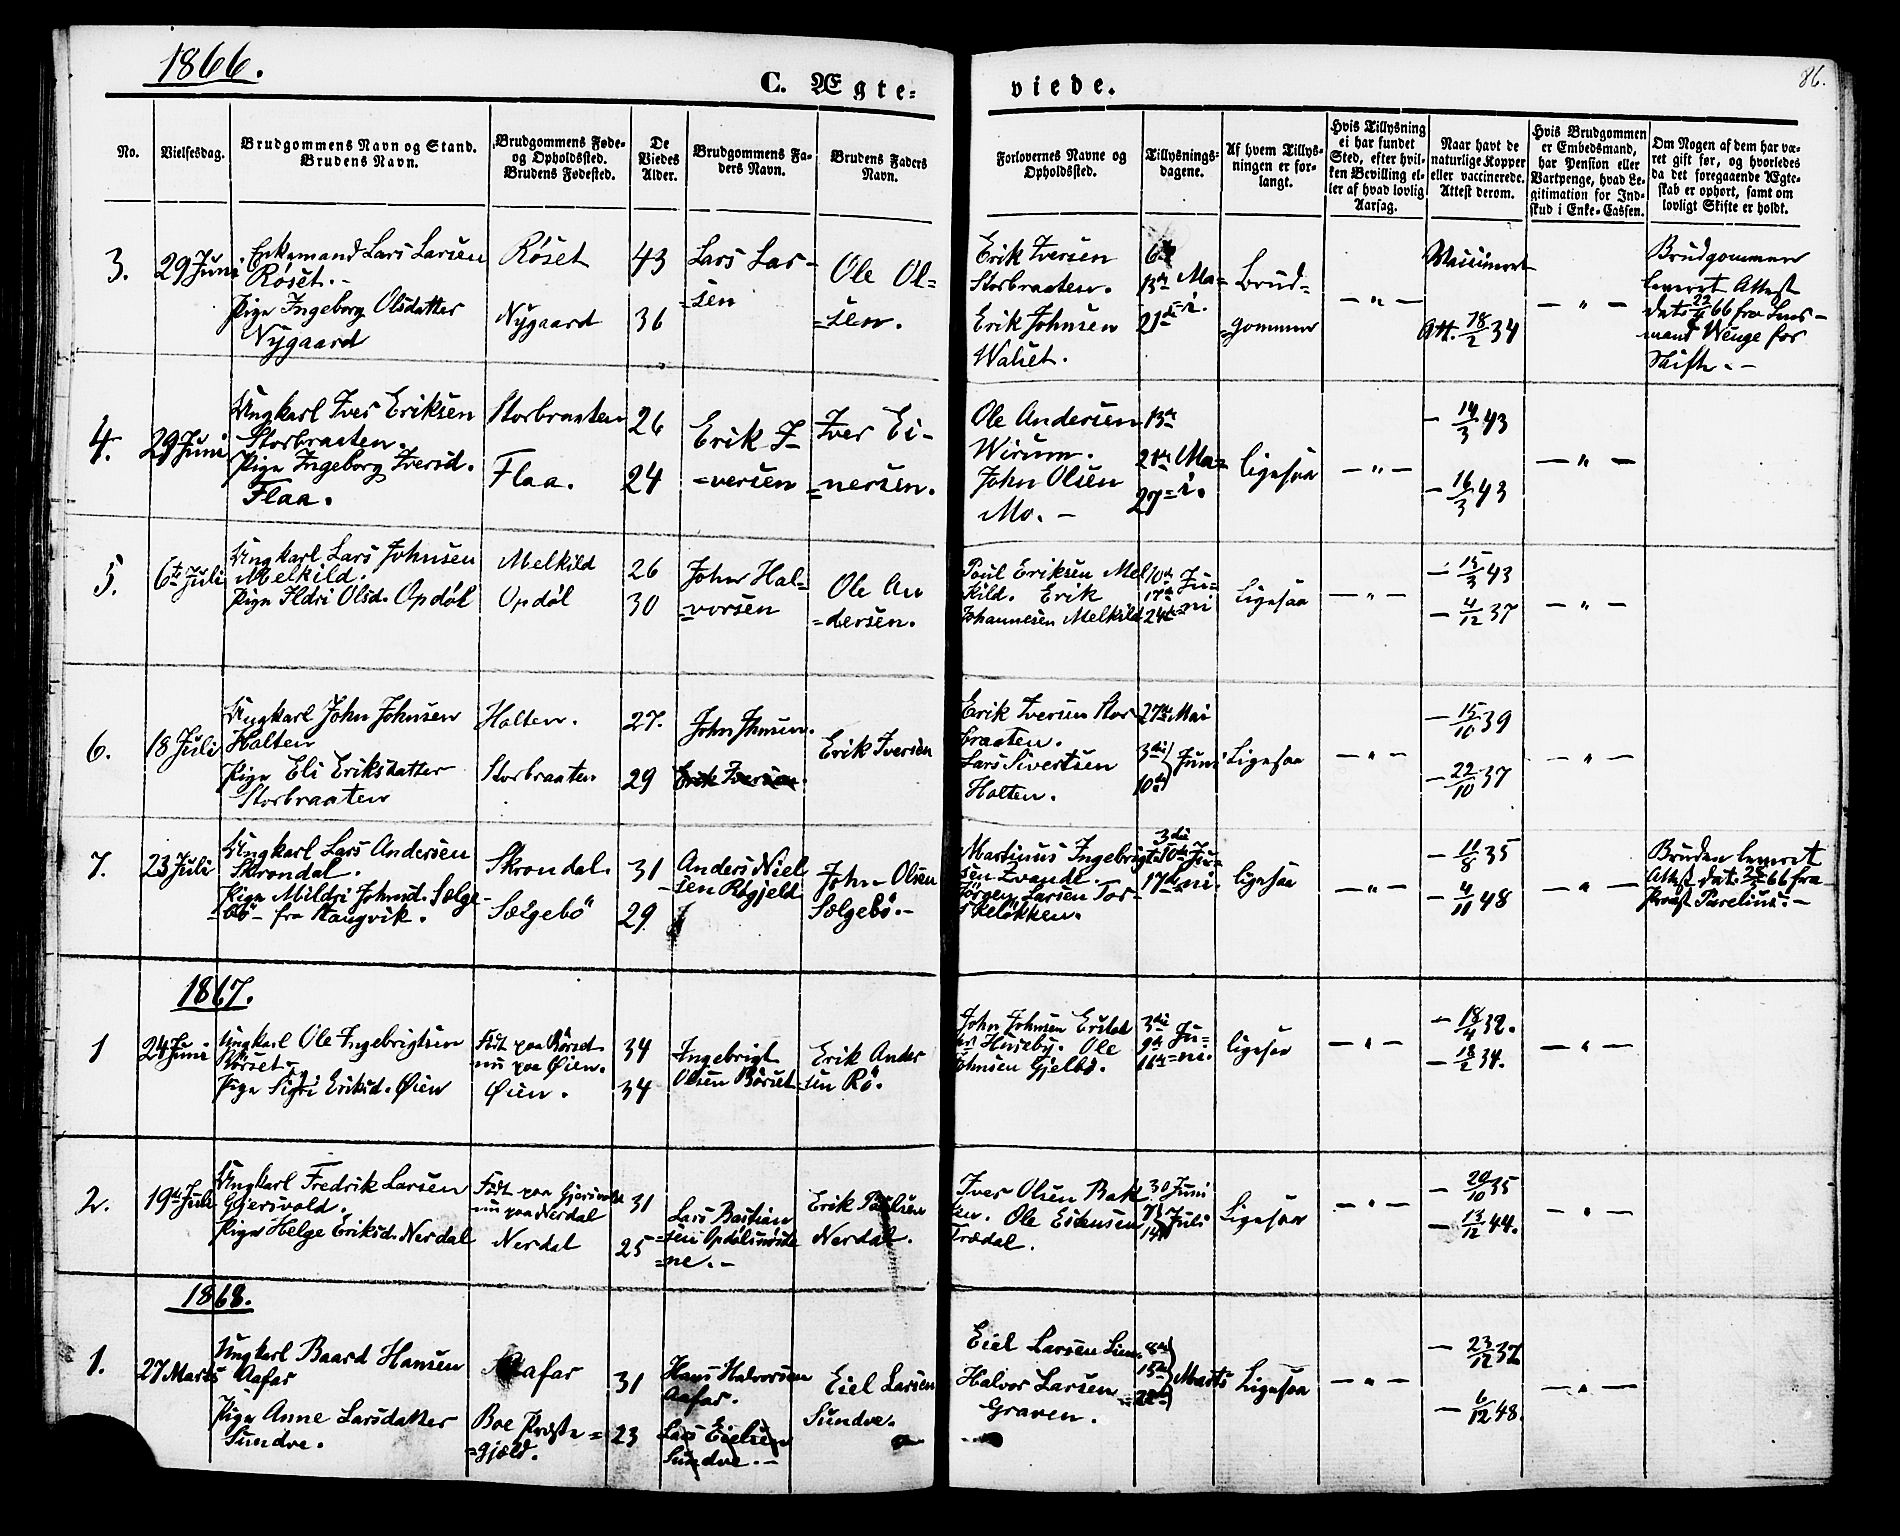 1866.
86.
C. Ægte=
viede.
No.
Vielsesdag.
Brudgommens Navn og Stand.
Brudens Navn.
Brudgommens Føde-
og Opholdssted.
Brudens Fødested.
De
Viedes
Alder.
Brudgommens Fa-
ders Navn.
Brudens Faders
Navn.
Forlovernes Navne og
Opholdssted.
Tillysnings-
dagene.
Af hvem Tillys-
ningen er for-
langt.
Hvis Tillysning
ei har fundet
Sted, efter hvil-
ken Bevilling el-
ler af hvad lovlig
Aarsag.
Naar havt de
naturlige Kopper
eller vaccinerede.
Attest derom.
Hvis Brudgommen
er Embedsmand,
har Pension eller
Vartpenge, hvad Le-
gitimation for Ind-
skud i Enke-Cassen.
Om Nogen af dem har væ-
ret gift før, og hvorledes
da det foregaaende Ægte-
skab er ophørt, samt om
lovligt Skifte er holdt.
3.
29 Juni
Enkemand Lars Larsen
Røset.-
Pige Ingeborg Olsdatter
Nygaard
Røset
Nygaard
43
36
Lars Lar-
=sen
Ole Ol=
=sen.
Erik Iversen
Storbraaten.
Erik Johnsen
6te
13de Ma=
21de i.
Brud=
gommen
— " —
Att. 18/2 34
— " —
Brudgommen
leveret Attest
dat. 22/4 66 fra Lens-
mand Wenge for
Skifte.-
4.
29 Juni
Ungkarl Iver Eriksen
Storbraaten.
Pige Ingeborg Iversd.
Flaa.
Storbraaten
Flaa.
26
24
Erik I-
=versen
Iver Ei-
=nersen.
Ole Andersen
Wirum.
John Olsen
Mo. -
13de
21de Ma=
27= i.
ligesaa
— " —
— 14/3 43
— 16/3 43
— " —
5.
6te Juli
Ungkarl Lars Johnsen
Melkild.
Pige Ildri Olsd. Opdøl
Melkild
Opdøl
26
30
John Hal=
=vorsen
Ole An
=dersen.
Poul Eriksen Mel
kild. Erik
Johannesen Melkild
10de Ju=
17de =ni
24de
ligesaa
— " —
— 15/3 43
— 4/12 37
— " —
6.
18 Juli
Ungkarl John Johnsen
Holten
Pige Eli Eriksdatter
Storbraaten
Holten.
Storbraaten
27.
29
John Johnsen.
Erik Iversen.
Erik Iversen
Erik Iversen Stor
braaten.
Lars Sivertsen
Holten.
27de Mai
3die Juni
10de
Ligesaa
— " —
— 15/10 39
— 22/10 37
— " —
7.
23 Juli
Ungkarl Lars Andersen
Skrondal.
Pige Mildri Johnsd. Sølge-
=bö - fra Stangvik.
Skrondal.
Sølgebö
31
29
Anders Niel
sen
John Olsen
Sølgebö.-
Martinus Ingebrigt
Jörgen Larsen Tor-
3die
10de Ju=
17de ni.
ligesaa
— " —
— 11/8 35
— 4/11 48
— " —
Bruden leveret
fra
1867.
1
24 Juni
Ungkarl Ole Ingebrigtsen
Børset
Pige Sigri Eriksd. Øien
Født paa Børset
nu paa Øien.
Øien.
34
34
Ingebrigt
Olsen Børset
Erik Ander
sen Rö.
John Johnsen
Ole
Johnsen Gjelbö.
3die Ju=
9de =ni.
16de
ligesaa
— " —
— 18/4 32.
— 18/2 34.
— " —
2.
19de Juli
Ungkarl Fredrik Larsen
Gjersvold.
Pige Helge Eriksd. Nerdal
Født paa Gjersvold
nu paa Nerdal
Nerdal
31
25
Lars Bastian
=sen Opdölsmöste
=ne.-
Erik Poulsen
Nerdal.
Iver Olsen Bak
ken. Ole Estensen
Trædal.
30 Juni
7de Juli
14de
Ligesaa
— " —
— 20/10 35
— 13/12 44.
— " —
1868.
1.
27 Marts
Ungkarl Baard Hansen
Aafar
Pige Anne Larsdatter
Sundre.
Aafar
Boe Præste=
=gjeld.
31
23
Hans Halvorsen
Aafar.
Lars Eielsen
Sundre.-
Eiel Larsen
Sundre.
Eiel Larsen
Halvor Larsen
Graven.
8de
15de Marts
22de
Ligesaa
— " —
— 23/12 37
— 6/12 48.
— " —